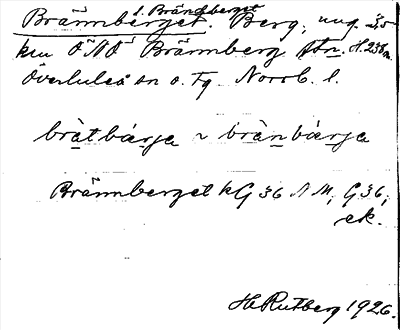 l. Brändberget
Brännberget. Berg, ung. 3,5
km ÖNÖ Brännberg stn. H. 238 m.
Överluleå sn o. Tg Norrb. l.
bràtbárja ~ brànbárja
Brännberget kG 36 AM, G 36,
ek.
H. Rutberg 1926.